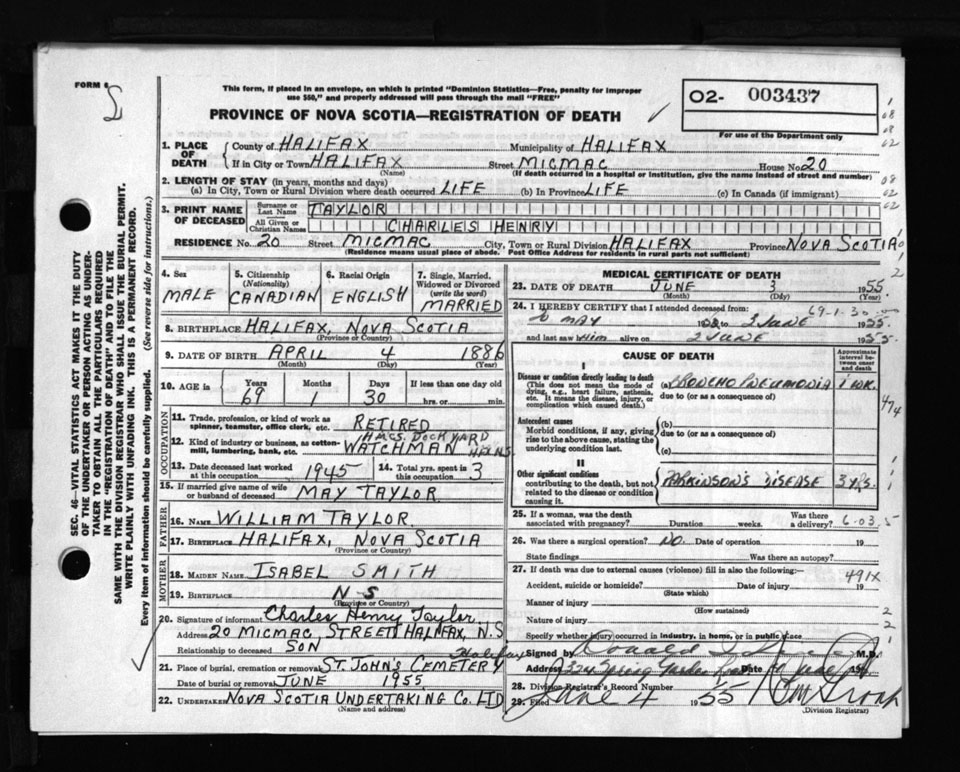 FORM
This form, if placed in an envelope, on which is printed "Dominion Statistics—Free, penalty for improper
use $50," and properly addressed will pass through the mail "FREE"
PROVINCE OF NOVA SCOTIA—REGISTRATION OF DEATH
O2- 003437
For use of the Department only
SEC. 46—VITAL STATISTICS ACT MAKES IT THE DUTY
OF THE UNDERTAKER OR PERSON ACTING AS UNDER-
TAKER TO OBTAIN ALL THE PARTICULARS REQUIRED
IN THE "REGISTRATION OF DEATH" AND TO FILE THE
SAME WITH THE DIVISION REGISTRAR WHO SHALL ISSUE THE BURIAL PERMIT.
WRITE PLAINLY WITH UNFADING INK. THIS IS A PERMANENT RECORD.
Every item of information should be carefully supplied. (See reverse side for instructions.)
1. PLACE OF DEATH County of HALIFAX Municipality of HALIFAX
If in City or Town HALIFAX (Name) Street MICMAC House No. 20
(If death occurred in a hospital or institution, give the name instead of street and number)
2. LENGTH OF STAY (in years, months and days)
(a) In City, Town or Rural Division where death occurred LIFE (b) In Province LIFE (c) In Canada (if immigrant)
3. PRINT NAME OF DECEASED Surname or Last Name TAYLOR
All Given or Christian Names CHARLES HENRY
RESIDENCE No. 20 Street MICMAC City, Town or Rural Division HALIFAX Province NOVA SCOTIA
(Residence means usual place of abode. Post Office Address for residents in rural parts not sufficient)
4. Sex MALE
5. Citizenship (Nationality) CANADIAN
6. Racial Origin ENGLISH
7. Single, Married, Widowed or Divorced (write the word) MARRIED
8. BIRTHPLACE HALIFAX, NOVA SCOTIA
(Province or Country)
9. DATE OF BIRTH APRIL 4 1886
(Month) (Day) (Year)
10. AGE in Years 69 Months 1 Days 30 If less than one day old hrs. or min.
OCCUPATION
11. Trade, profession or kind of work as spinner, teamster, office clerk, etc. RETIRED
12. Kind of industry or business, as cotton-mill, lumbering, bank, etc. H.M.C.S. DOCKYARD WATCHMAN
13. Date deceased last worked at this occupation 1945 14. Total yrs. spent in this occupation 3
15. If married give name of wife or husband of deceased MAY TAYLOR
FATHER
16. NAME WILLIAM TAYLOR
17. BIRTHPLACE HALIFAX, NOVA SCOTIA
(Province or Country)
MOTHER
18. MAIDEN NAME ISABEL SMITH
19. BIRTHPLACE N-S
(Province or Country)
20. Signature of informant Charles Henry Taylor
Address 20 MICMAC STREET HALIFAX, N.S.
Relationship to deceased SON
21. Place of burial, cremation or removal ST. JOHN'S CEMETERY Halifax
Date of burial or removal JUNE 1955
22. UNDERTAKER NOVA SCOTIA UNDERTAKING CO. LTD
(Name and address)
MEDICAL CERTIFICATE OF DEATH
23. DATE OF DEATH JUNE 3 1955
(Month) (Day) (Year)
24. I HEREBY CERTIFY that I attended deceased from: 69-1-30
MAY 19 2 JUNE 1955
and last saw him alive on 2 JUNE 1955
CAUSE OF DEATH
Approximate interval between onset and death
I
Disease or condition directly leading to death (This does not mean the mode of dying, e.g., heart failure, asthenia, etc. It means the disease, injury, or complication which caused death.)
(a) BRONCHO PNEUMONIA 1 WK.
due to (or as a consequence of)
Antecedent causes
Morbid conditions, if any, giving rise to the above cause, stating the underlying condition last.
(b)
due to (or as a consequence of)
(c)
II
Other significant conditions contributing to the death, but not related to the disease or condition causing it.
PARKINSON'S DISEASE 3 YRS.
25. If a woman, was the death associated with pregnancy? Duration weeks. Was there a delivery? 6-03.5
26. Was there a surgical operation? NO. Date of operation 19
State findings Was there an autopsy?
27. If death was due to external causes (violence) fill in also the following:—
491X
Accident, suicide or homicide? (State which) Date of injury 19
Manner of injury
(How sustained)
Nature of injury
Specify whether injury occurred in industry, in home, or in public place
Signed by Donald M.D.
Address Spring Garden Road Date June 19
28. Division Registrar's Record Number
29. Filed June 4 1955
(Division Registrar)